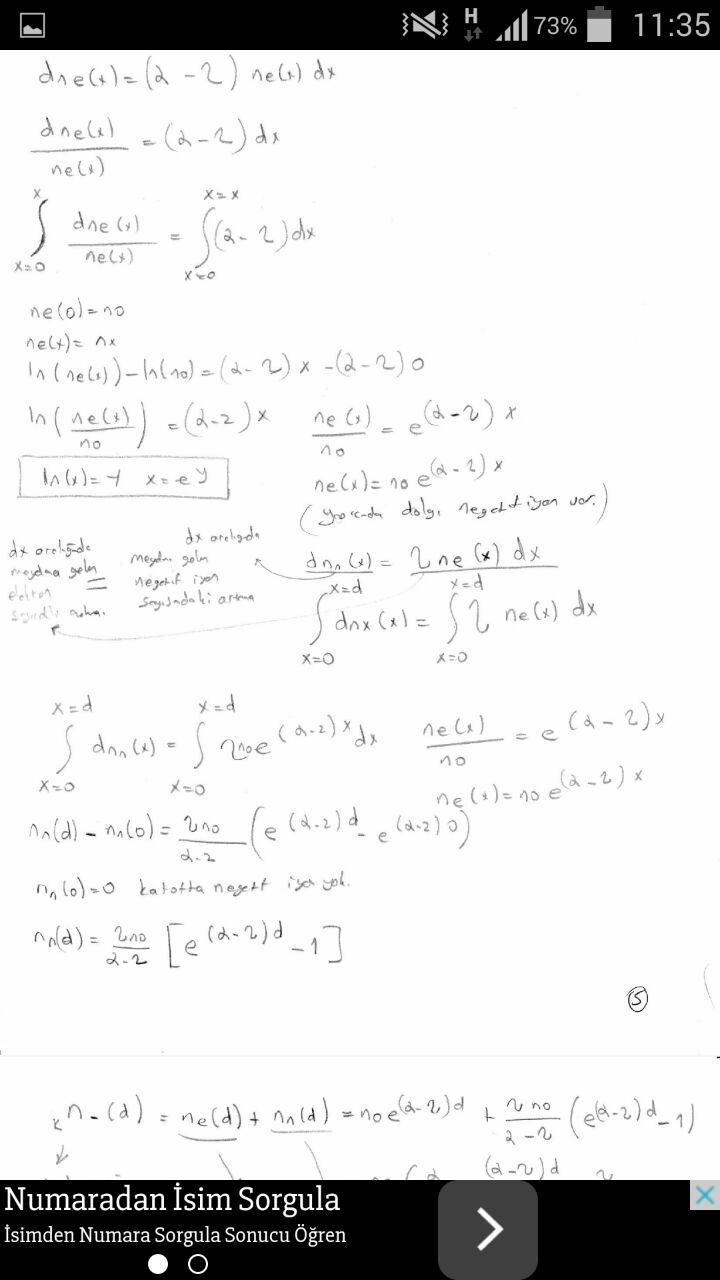 H 73% 11:35
dne(x) = (α - η) ne(x) dx
dne(x) / ne(x) = (α - η) dx
∫ x=0 → x dne(x) / ne(x) = ∫ x=0 → x=x (α - η) dx
ne(0) = n0
ne(x) = nx
ln(ne(x)) - ln(n0) = (α - η) x - (α - η) 0
ln(ne(x) / n0) = (α - η) x
ne(x) / n0 = e^(α - η) x
ln(x) = y x = e^y
ne(x) = n0 e^(α - η) x
negatif iyon var.)
dx aralığında meydana gelen elektron
=
dx aralığında meydana gelen negatif iyon sayısındaki artma
dnn(x) = η ne(x) dx
∫ x=0 → x=d dnx(x) = ∫ x=0 → x=d η ne(x) dx
∫ x=0 → x=d dnn(x) = ∫ x=0 → x=d ηn0e^(α - η) x dx
ne(x) / n0 = e^(α - η) x
ne(x) = n0 e^(α - η) x
nn(d) - nn(0) = ηn0 / α - η (e^(α - η) d - e^(α - η) 0)
nn(0) = 0 katotta negatif iyon yok.
nn(d) = ηn0 / α - η [e^(α - η) d - 1]
5
n-(d) = ne(d) + nn(d) = n0 e^(α - η) d + η n0 / α - η (e^(α - η) d - 1)
(α - η) d
Numaradan İsim Sorgula
İsimden Numara Sorgula Sonucu Öğren